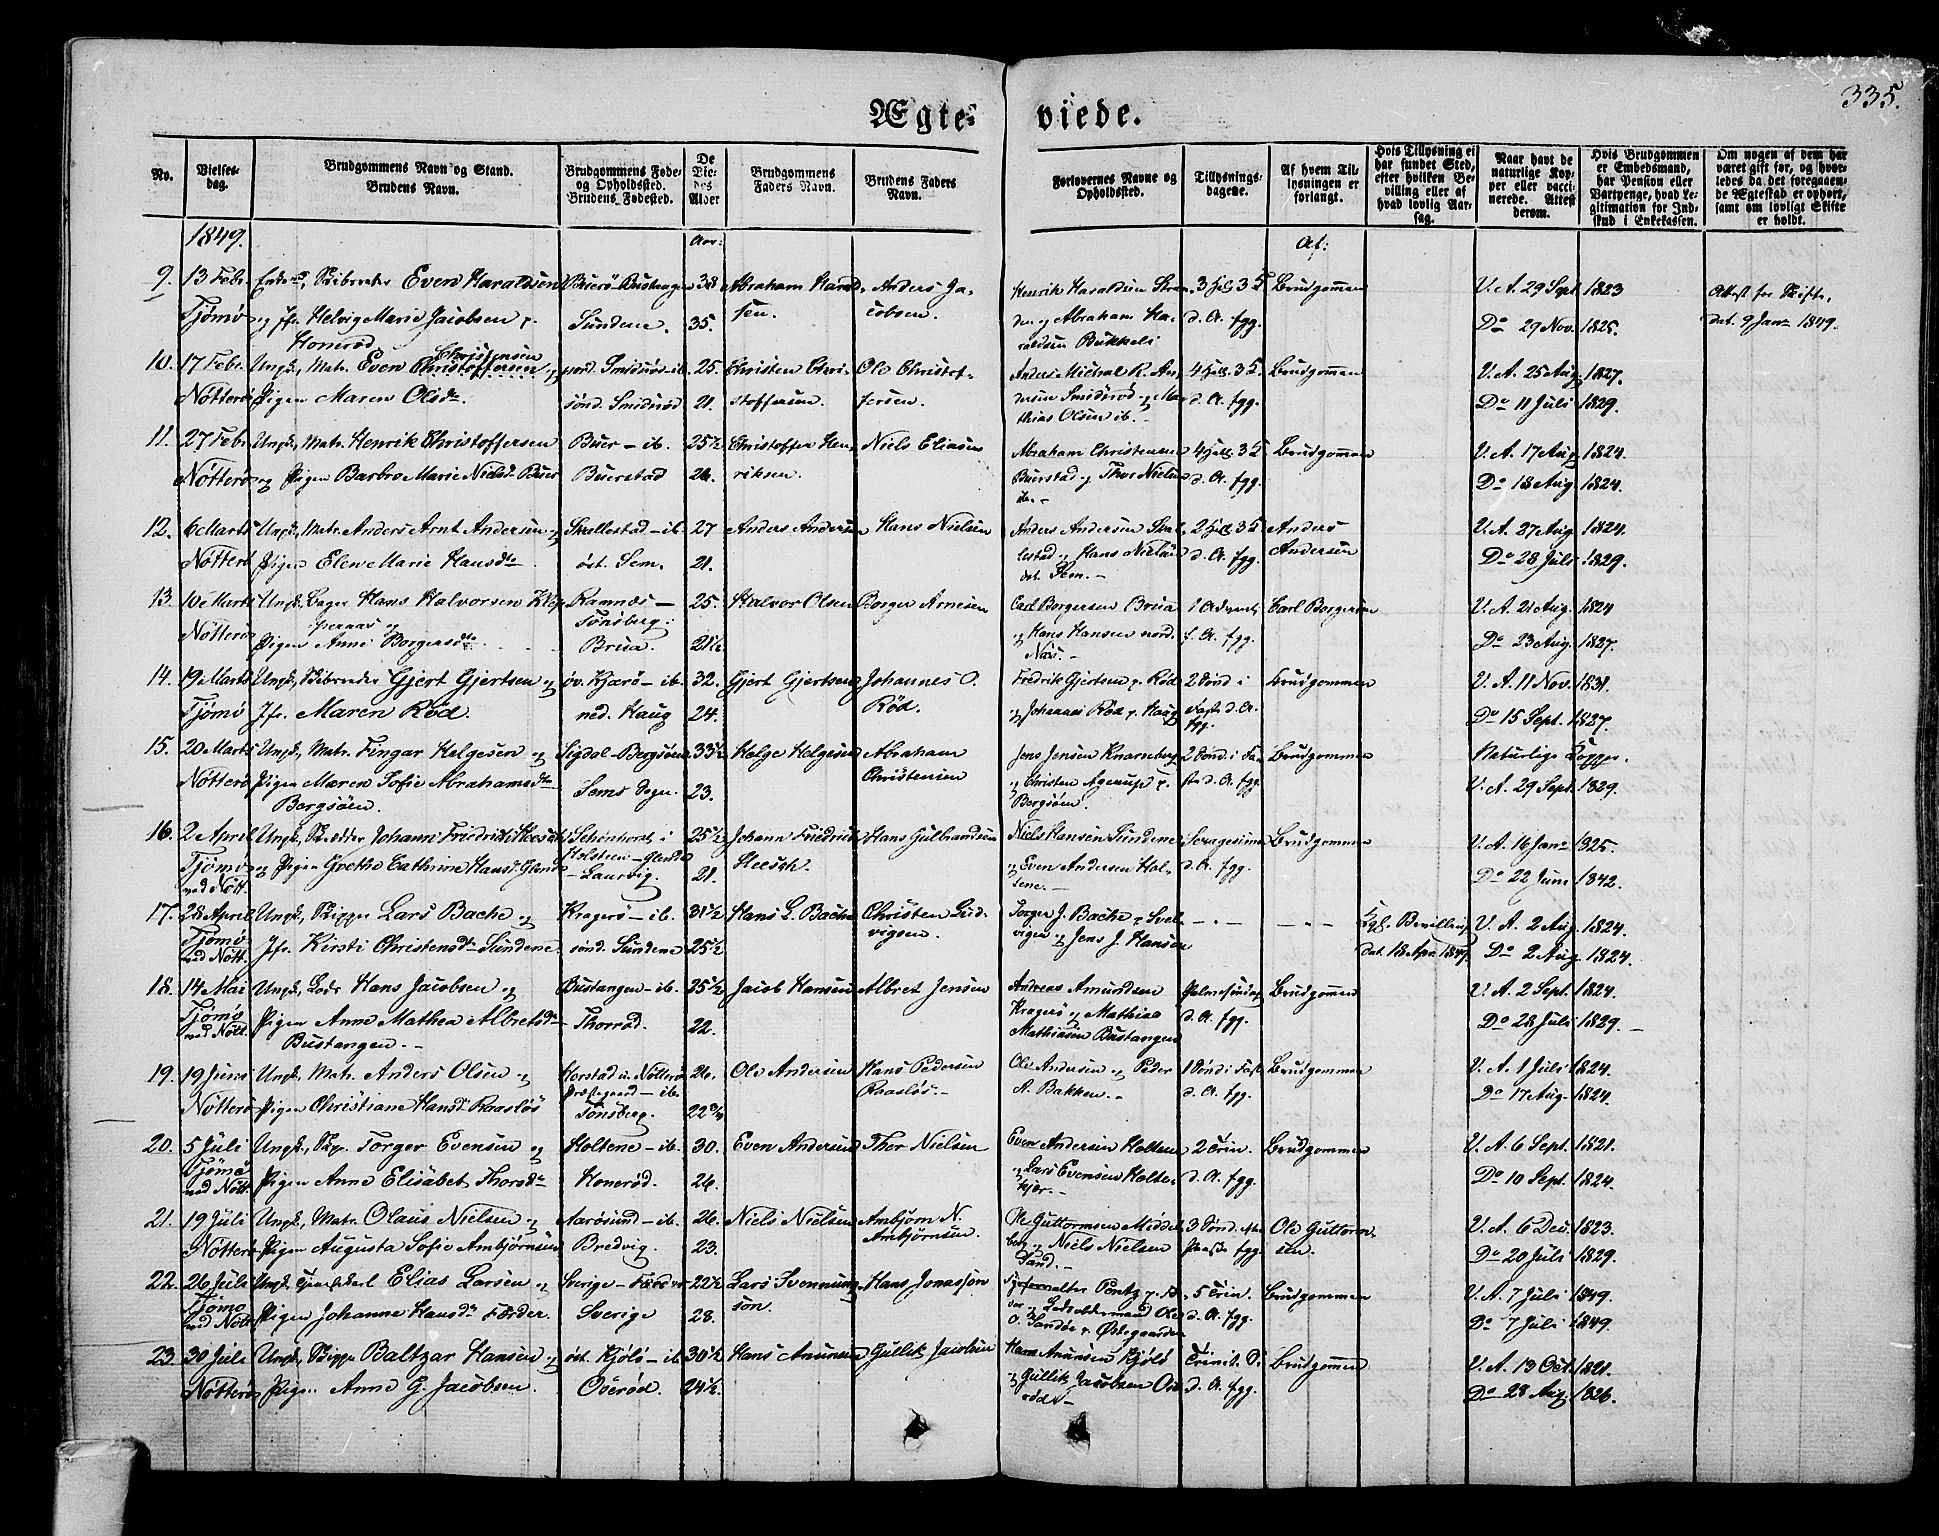 335.
Ægte- viede.
No. | Vielses- dag. | Brudgommens Navn og Stand. Brudens Navn. | Brudgommens Føde- og Opholdssted. Brudens Fødested. | De Vie- des Alder | Brudgommens Faders Navn. | Brudens Faders Navn. | Forlovernes Navne og Opholdssted. | Tillysnings- dagene. | Af hvem Til- lysningen er forlangt. | Hvis Tillysning ei har fundet Sted, efter hvilken Be- villing eller af hvad lovlig Aar- sag. | Naar havt de naturlige Kop- per eller vacci- nerede. Attest derom. | Hvis Brudgommen er Embedsmand, har Pension eller Vartpenge, hvad Le- gitimation for Ind- skud i Enkekassen. | Om nogen af dem har været gift før, og hvor- ledes da det foregaaen- de Ægteskab er ophørt, samt om lovligt Skifte er holdt.
1849. | Aar: | Af:
9. | 13 Febr. | Even Haraldsen | Buerö-Bustangen | 38 | Abraham Harald- | Anders Ja- | Henrik Haraldsen | 3 | Brudgommen | V. A. 29 Sept. 1823 | Attest for Skifte,
Tjømø | og Jfr. Helvig Marie Jacobsen | Sundene. | 35. | sen. | cobsen. | og Abraham Ha- | d. A. fgg. | Do 29 Nov. 1825. | dat. 9 Janr 1849.
Honerød | raldsen Bukkeli
Christensen
10. | 17 Febr. | Ungk., Matr. Even Christoffersen og | nord. Smidsrød-ib. | 25. | Christen Chri- | Ole Christof- | Anders Michal R. An- | 4 | Brudgommen | V. A. 25 Aug. 1827.
Nötterö | Pigen Maren Olsdr. | sönd. Smidsrød | 21. | stoffersen. | fersen. | dersen Smidsrød og Ma- | d. A. fgg. | Do 11 Juli 1829.
thias Olsen ib.
11. | 27 Febr. | Ungk., Matr. Henrik Christoffersen | Buer - ib. | 25½ | Christoffer Hen- | Niels Eliasen | Abraham Christensen | 4 | Brudgommen | V. A. 17 Aug. 1824.
Nötterö | og Pigen Barbro Marie Nielsd. Buer | Buerstad | 26. | riksen. | Buerstad og Thor Nielsen | d. A. fgg. | Do 18 Aug. 1824.
ib.-
12. | 6 Marts | Ungk., Matr. Anders Arnt Andersen og | Skallestad - ib. | 27 | Anders Andersen | Hans Nielsen | Anders Andersen Skal- | 2 | Anders | V. A. 27 Aug. 1824.
Nötterö | Pigen Elen Marie Hansdtr | öst. Sem. | 21. | lestad og Hans Nielsen | d. A. fgg. | Andersen | Do 28 Juli 1829.
öst. Sem.-
13. | 10 Marts | Ungk., Hans Halvorsen | Ramnæs - | 25. | Halvor Olsen | Borger Arnesen | Carl Borgersen Brua | 1 Advent | Carl Borgersen | V. A. 21 Aug. 1824
Nötterö | og | Tönsberg. | og Hans Hansen nord. | f. A. fgg.
Pigen Anne Borgersdtr | Brua. | 21½ | Næs.- | Do 23 Aug. 1827.
14. | 19 Marts | Ungk., Gjert Gjertsen og | öv. Kjærö - ib. | 32. | Gjert Gjertsen | Johannes O. | Fredrik Gjertsen p. Rød | 2 Sönd i | Brudgommen | V. A. 11 Nov. 1831.
Tjømø | Jfr. Maren Rød. | ned. Haug | 24. | Rød. | og Johannes Rød p. Haug | Faste d. A. | Do 15 Sept. 1837.
fgg.
15. | 20 Marts | Ungk., Matr. Fingar Helgesen og | Sigdal-Bergsöen | 33½ | Helge Helgesen | Abraham | Jens Jensen Knarneberg | 2 Sönd. i Fa- | Brudgommen | Naturlige Kopper.
Nötterö | Pigen Maren Sofie Abrahamsdtr | Sems Sogn. | 23. | Christensen | og Christen Agerup p. | ste d. A. fgg. | V. A. 29 Sept. 1829.
Bergsöen. | Bergsöen.
16. | 2 April | Ungk., Skrædder Johann Friedrich Heesch | Schönhorst i | 25½ | Johann Friedrich | Hans Gulbrandsen | Niels Hansen Sundene | Sexagesima | Brudgommen | V. A. 16 Janr 1825.
Tjømø | og Pigen Grethe Cathrine Hansd. | Holsteen- | 21. | Heesch. | og Even Andersen Hol- | d. A. fgg. | Do 22 Juni 1842.
ved Nött. | - Laurvig. | tene.-
17. | 28 April | Ungk., Skipper Lars Bache og | Kragerö - ib. | 31½ | Hans L. Bache | Christen Lud- | Torger J. Bache p. Svel- | - . - | - . - | Kgl. Bevilling | V. A. 2 Aug. 1824.
Tjømø | Jfr. Kirsti Christensdr Sundene | sönd. Sundene | 25½ | vigsen. | vigen og Jens J. Hansen | dat. 18 Apr. 1849. | Do 2 Aug. 1824.
ved Nött.
18. | 14 Mai | Ungk., Lods Hans Jacobsen og | Bustangen - ib. | 25½ | Jacob Hansen | Albret Jensen | Andreas Amundsen | Palmesöndag | Brudgommen | V. A. 2 Sept. 1824.
Tjømø | Pigen Anne Mathea Albretsdr | Thorrød. | 22. | Kragerö og Mathias | d. A. fgg. | Do 28 Juli 1829.
ved Nött. | Bustangen.- | Mathiasen Bustangen
19. | 19 Juni | Ungk., Matr. Anders Olsen og | Horstad i Nötterö | 26. | Ole Andersen | Hans Pedersen | Ole Andersen og Peder | 1 Sönd i Faste | Brudgommen | V. A. 1 Juli 1824.
Nötterö | Pigen Christiane Hansdr Raaslös | Præstegaard - ib. | 22¾ | Raaslös.- | A. Bakken.- | d. A. fgg. | Do 17 Aug. 1824.
Tönsberg.
20. | 5 Juli | Ungk., Skip. Torger Evensen og | Holtene - ib. | 30. | Even Andersen | Thor Nielsen | Even Andersen Holtene | 2 Trin. | Brudgommen | V. A. 6 Sept. 1821.
Tjømø | Pigen Anne Elisabet Thorsdr | Honerød. | 26. | og Lars Evensen Holte- | d. A. fgg. | Do 10 Sept. 1824.
ved Nött. | kjær.-
21. | 19 Juli | Ungk., Matr. Olaus Nielsen og | Aarösund - ib. | 26. | Niels Nielsen | Ambjørn N. | Ole Guttormsen Middel- | 3 Sönd. efter | Ole Guttorm- | V. A. 6 Dec. 1823.
Nötterö | Pigen Augusta Sofie Ambjørnsen | Bredvig. | 23. | Ambjørnsen. | berg og Niels Nielsen | Paaske fgg. | sen. | Do 20 Juli 1829.
Sand.-
22. | 26 Juli | Ungk. Elias Larsen og | Sverige - Færder | 22½ | Lars Svennung- | Hans Jonasson | Fyrforvalter Pöntz p. Fær- | 5 Trin. | Brudgommen | V. A. 7 Juli 1849.
Tjømø | Pigen Johanne Hansdr Færder. | Sverige | 28. | sön. | der og Lodsoldermand Ole | d. A. fgg. | Do 7 Juli 1849.
ved Nött. | O. Sandöe p. Östegaarden
23. | 30 Juli | Ungk., Skipper Baltzar Hansen og | öst. Kjölö - ib. | 30½ | Hans Anunsen | Gullik Jacobsen | Hans Anunsen Kjölö | Trinit. S. | Brudgommen | V. A. 13 Oct. 1821.
Nötterö | Pigen Anne G. Jacobsen. | Oserød. | 24½. | og Gullik Jacobsen Ose- | d. A. fgg. | Do 28 Aug. 1826.
röd.-